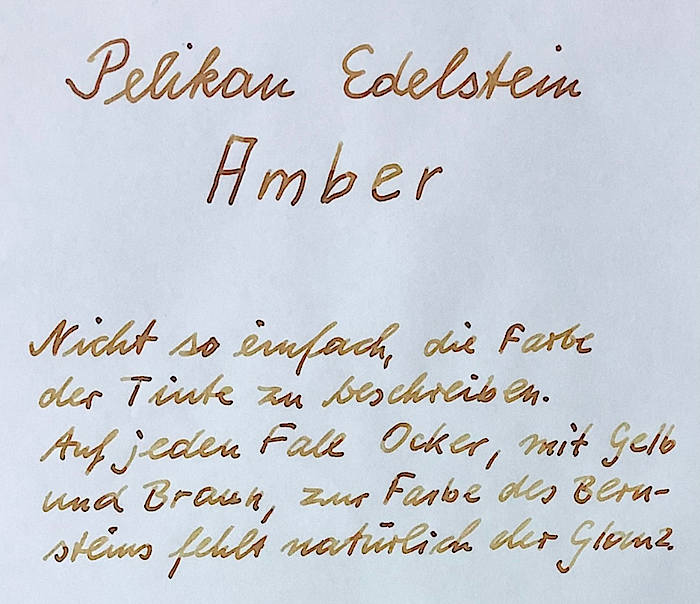 Pelikan Edelstein
Amber
Nicht so einfach, die Farbe
der Tinte zu beschreiben.
Auf jeden Fall Ocker, mit Gelb
und Braun, zur Farbe des Bern-
steins fehlt natürlich der Glanz.